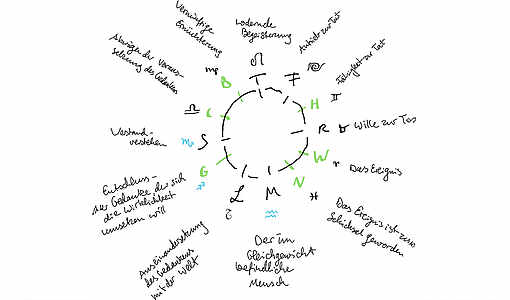 Vernünftige
Ernüchterung
lodernde
Begeisterung
Antrieb zur Tat
Fähigkeit zur Tat
Wille zur Tat
Das Ereignis
Das Ereignis ist zum
Schicksal geworden
Der im
Gleichgewicht
befindliche
Mensch
Auseinandersetzung
des Gedankens
mit der Welt
Entschluss-
der Gedanke der sich
die Wirklichkeit
umsetzen will
Verstand-
verstehen
Abwägen der Voraus-
setzung des Gedanken
♌
T
F
♋
H
♊
R
♉
W
♈
N
♓
M
♒
L
♑
G
♐
S
♏
C
♎
B
♍